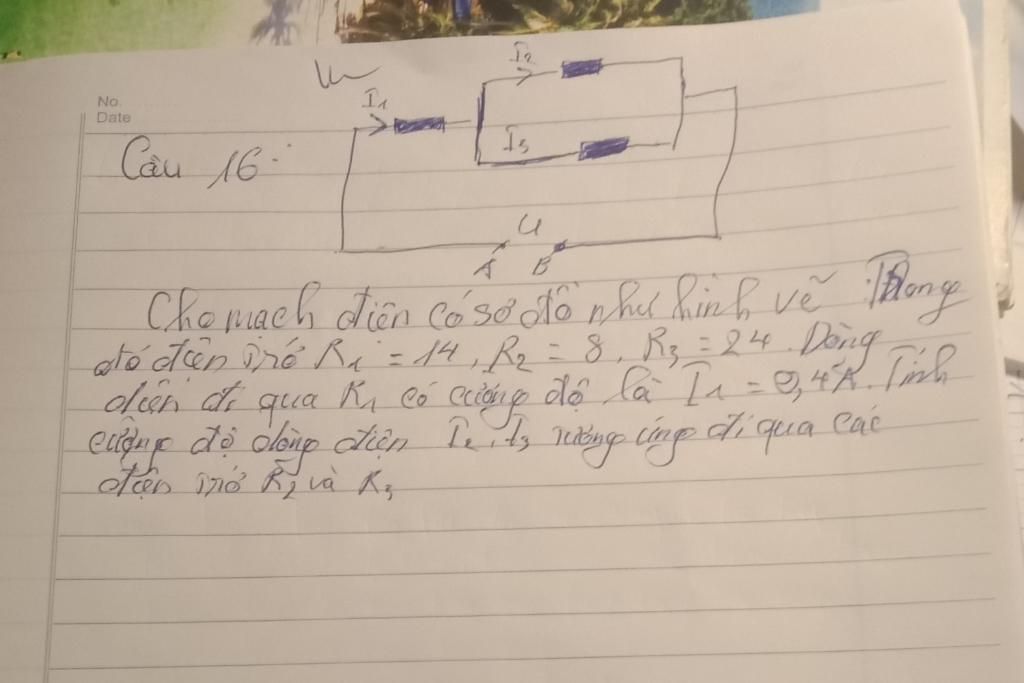 No.
Date
I2
I1
Câu 16
I3
U
A B
Cho mạch điện có sơ đồ như hình vẽ Trong
đó điện trở R1 = 14, R2 = 8, R3 = 24. Dòng
điện đi qua R1 có cường độ là I1 = 0,4A. Tính
cường độ dòng điện I2, I3 tương ứng đi qua các
điện trở R2 và R3